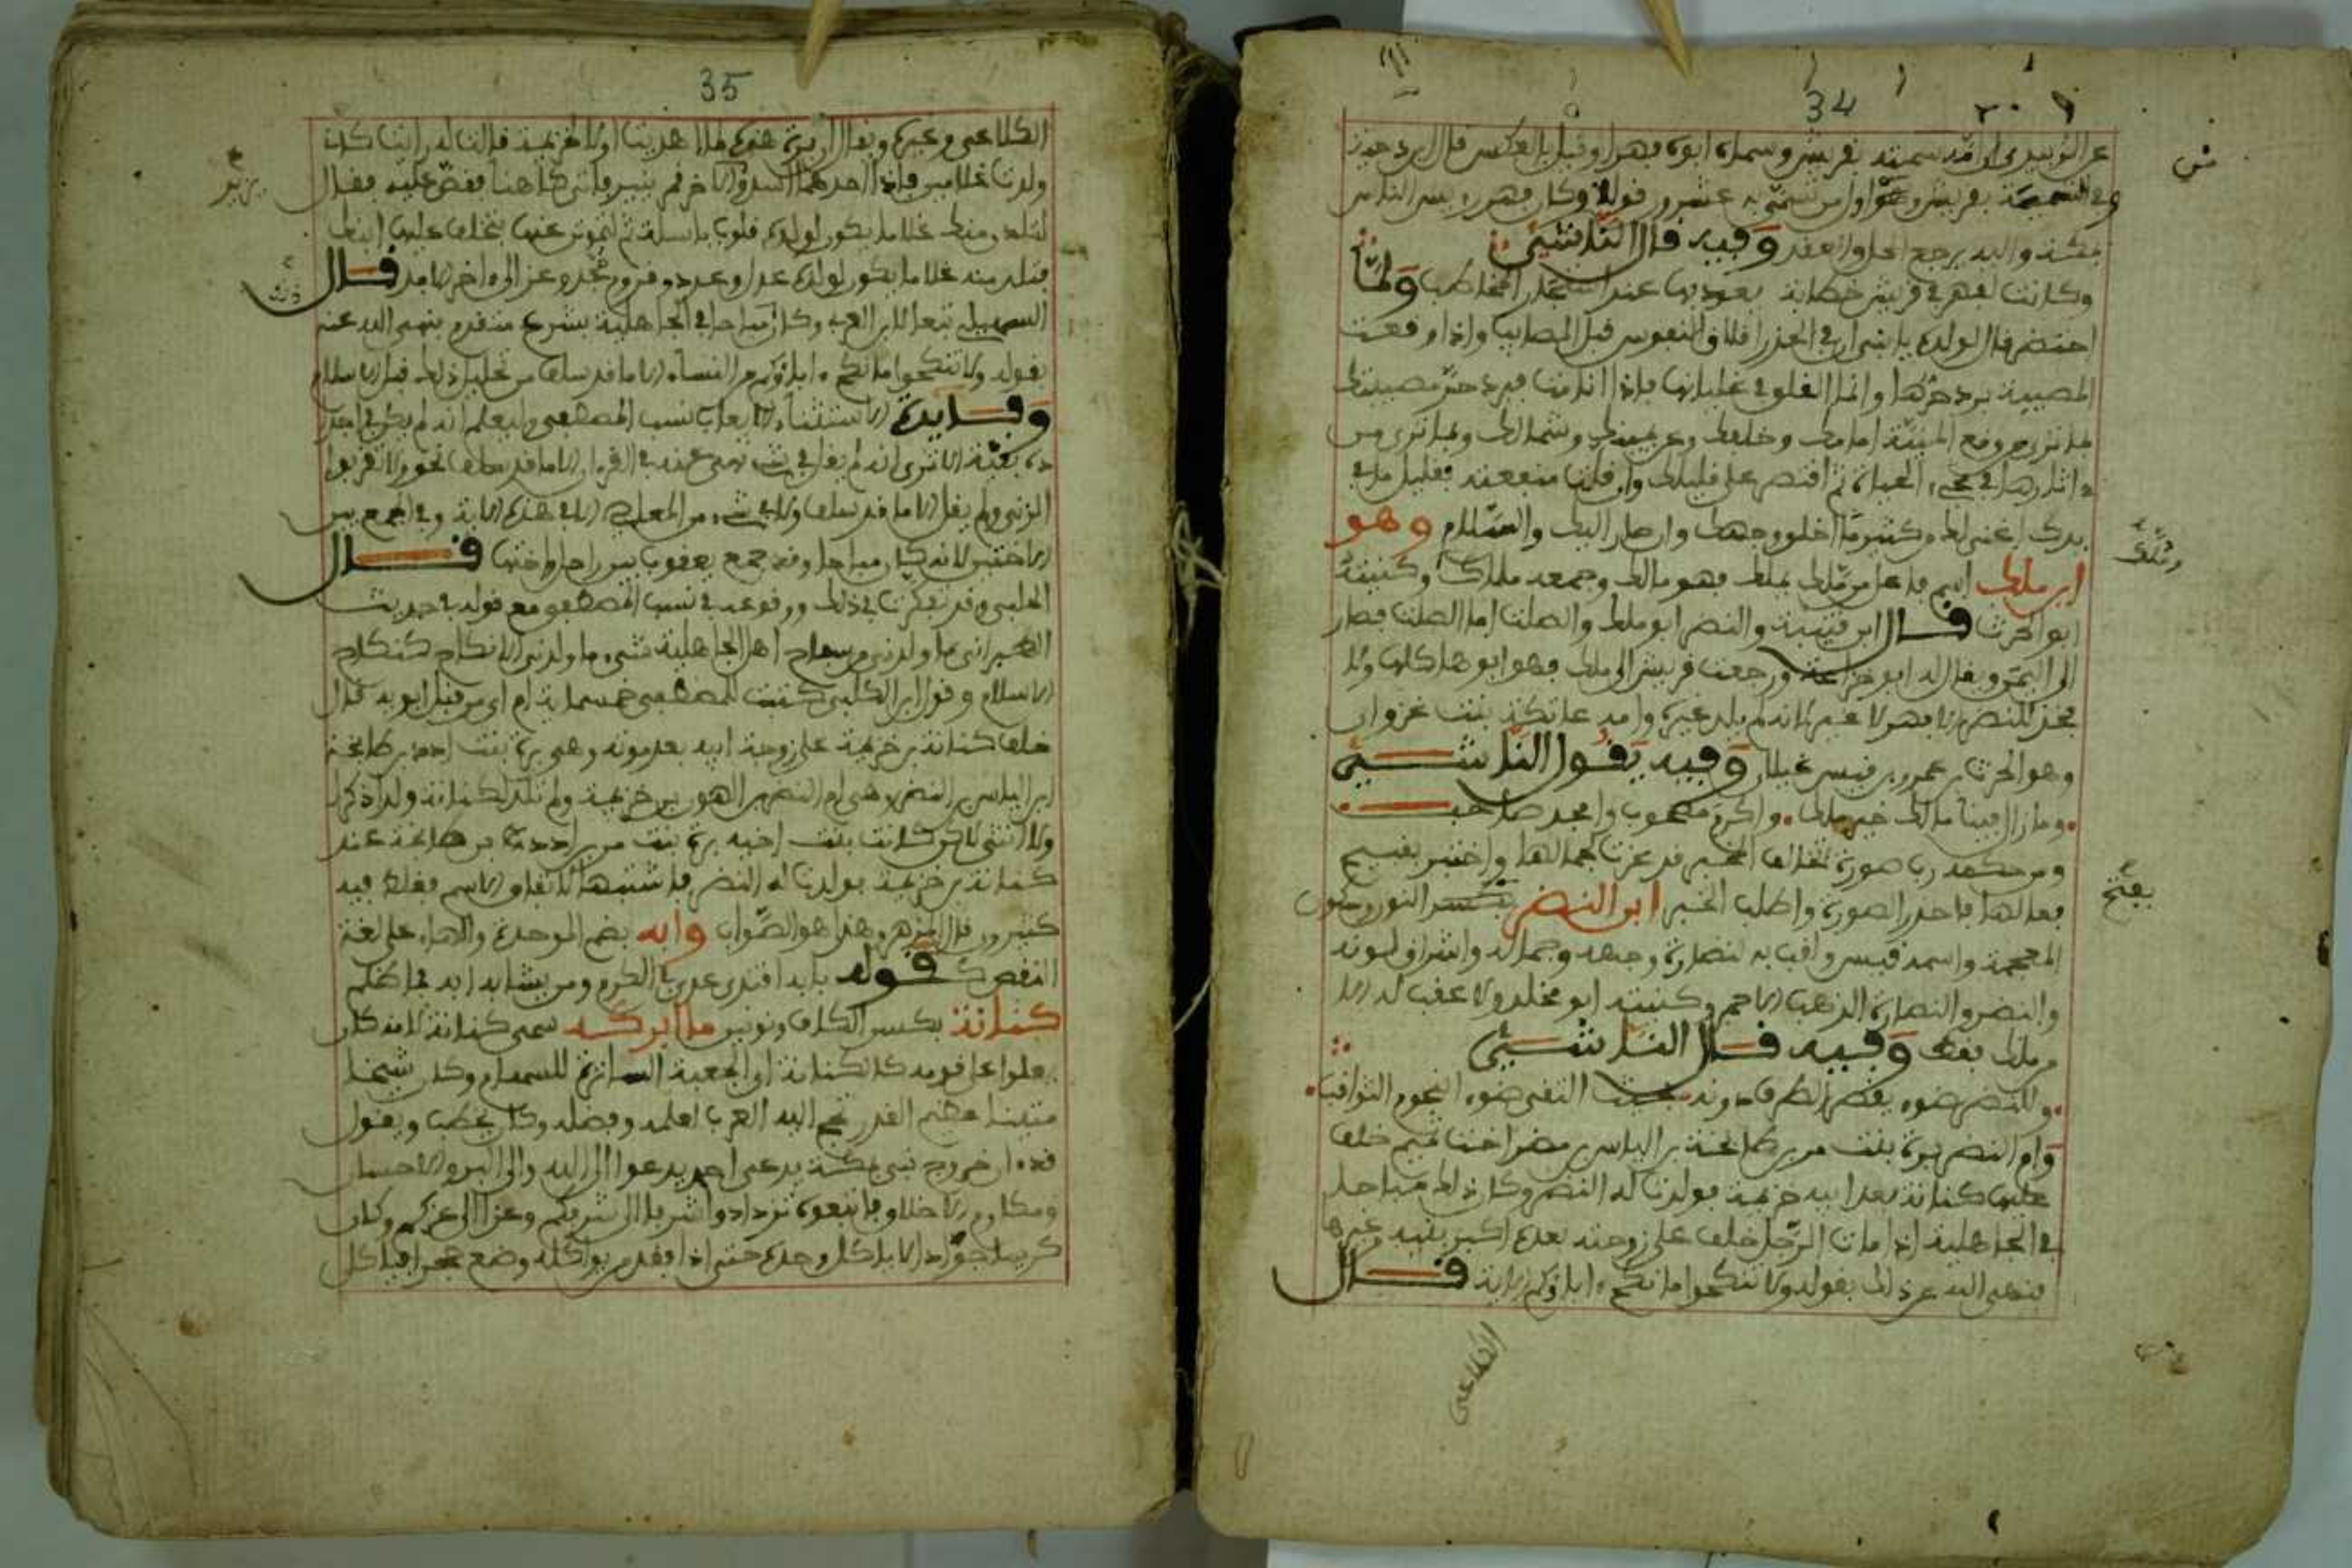 34
عن الزبيدي ان امه سمته بقريش وسماه ابوه فهرا وقيل بالعكس قال ابن دحية
بمكة واليه يرجع الحل والعقد وفيه قال الناشئ
وكانت لفهر في قريش خطابة يعوذ بها عند المخاطب ولما
احتضر قال لولده يا بني ان في الحذر اقلاق النفوس قبل المصايب واذا وقعت
المصيبة برد حرها وانما القلق في غليانها فاذا انا مت فبرد حر مصيبتك
بما ترى من وقع المنية امامك وخلفك وعن يمينك وشمالك وبما ترى من
ءاثارها في محيي الحياة ثم اقتصر على قليلك وان قلت منفعته فقليل ما في
يدك اغنى لك من كثير ما اخلق وجهك وان صار اليك والسلام وهو
ابن ملك اسم فاعل من ملك يملك فهو مالك وجمعه ملاك وكنيته
ابو الحرث قال ابن قتيبة والنضر ابو ملك والصلت اما الصلت فصار
الى اليمن ويقال له ابو خزاعة ورجعت قريش الى ملك فهو ابوها كلها ولا
فخذ للنضر الا فهو لا غير لانه لم يلد غيره وامه عاتكة بنت عدوان
وهو الحرث بن عمرو بن قيس غيلان وفيه يقول الناشئ
وما زال فينا مالك خير مالك واكرم مصحوب وامجد صاحب
ومن حكمه رب صورة تخالف المخبر قد غرت بجمالها واختبر بقبيح
فعالها فاحذر الصورة واطلب الخبر ابن النضر بفتح النون وسكون
المعجمة واسمه قيس ولقب به لنضارة وجهه وجماله واشراق لونه
والنضر والنضارة الذهب الاحمر وكنيته ابو مخلد ولا عقب له الا
من ملك فقط وفيه قال الناشئ
وللنضر ضوء يقصر الطرف دونه بحيث التقى ضوء النجوم الثواقب
وام النضر برة بنت مر بن طابخة بن الياس بن مضر اخت تميم خلف
عليها كنانة بعد ابيه خزيمة فولدت له النضر وكان ذلك مباحا
في الجاهلية اذا مات الرجل خلف على زوجته بعده اكبر بنيه من غيرها
فنهى الله عن ذلك بقوله ولا تنكحوا ما نكح ءاباؤكم الاية قال
الكلاعي
35
ولدت غلامين فاذا احدهما
لتلدن منك غلاما يكون لولده قلوب باسلة ثم لتموتن عنها يخلف عليها ابنك
فتلد منه غلاما يكون لولده عدل وعدد وعز الى ءاخر الامد قال
السهيلي تبعا لابن العربي وكان مباحا في الجاهلية بشرع متقدم ينهى الله عنه
بقوله ولا تنكحوا ما نكح ءاباؤكم من النساء الا ما قد سلف من تحليل ذلك قبل الاسلام
وفايدة الاستثناء الا يعاب نسب المصطفى وليعلم انه لم يكن في اجداده
بغية الا ترى انه لم يقل في شيء نهى عنه في القرءان الا ما قد سلف نحو ولا تقربوا
الزنى ولم يقل الا ما قد سلف ولا في شيء من المعاصي الا في هذه الاية وفي الجمع بين
الاختين لانه كان مباحا وقد جمع يعقوب بين راحيل واختها قال
الحلبي وقد تفكرت في ذلك ووقوعه في نسب المصطفى مع قوله في حديث
الطبراني ما ولدني من سفاح اهل الجاهلية شيء ما ولدني الا نكاح كنكاح
الاسلام وقول ابن الكلبي كتبت للمصطفى خمسماية ام اي من قبل ابويه قال
خلف كنانة بن خزيمة على زوجة ابيه بعد موته وهي برة بنت ادد بن طابخة
ابن الياس بن مضر وهي ام النضر بن خزيمة ولم تلد لكنانة ولدا ذكرا
ولا انثى لاكن كانت بنت اخيه برة بنت مر بن ادد بن طابخة عند
كنانة بن خزيمة فولدت له النضر فاشتبها لاتفاق الاسم فغلط فيه
كثيرون وهذا هو الصواب وابه بضم الموحدة والهاء على لغة
النقص كقوله بابه اقتدى عدي في الكرم ومن يشابه ابه فما ظلم
كنانة بكسر الكاف ونونين ما ابركه سمي كنانة لانه كان
يعلو على قومه كالكنانة او الجعبة الساترة للسهام وكان شيخا
حسنا عظيم القدر تحج اليه العرب لعلمه وفضله وكان يخطب ويقول
قد ءان خروج نبي بمكة يدعى احمد يدعوا الى الله والى البر والاحسان
ومكارم الاخلاق فاتبعوه تزدادوا شرفا الى شرفكم وعزا الى عزكم وكان
كريما جوادا لا ياكل وحده حتى اذا فقد من يواكله وضع حجرا فياكل